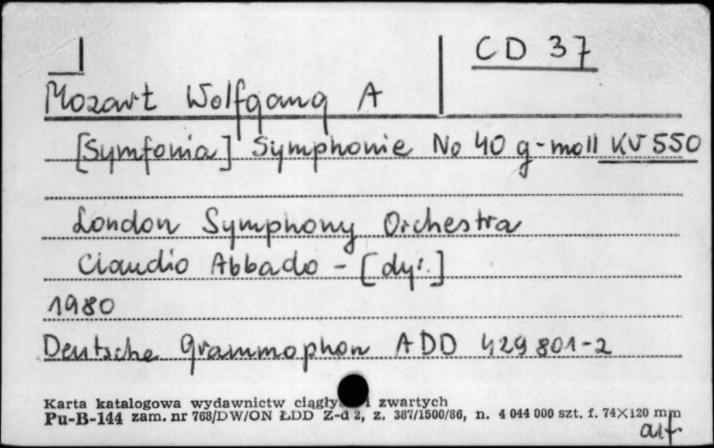 CD 37
Mozart Wolfgang A
[Symfonia] Symphonie No 40 g-moll KV 550
London Symphony Orchestra
Claudio Abbado - [dyr.]
1980
Deutsche Grammophon ADD 429 801-2
Karta katalogowa wydawnictw ciągły i zwartych
Pu-B-144 zam. nr 768/DW/ON ŁDD Z-d 2, z. 387/1500/86, n. 4 044 000 szt. f. 74×120 mm